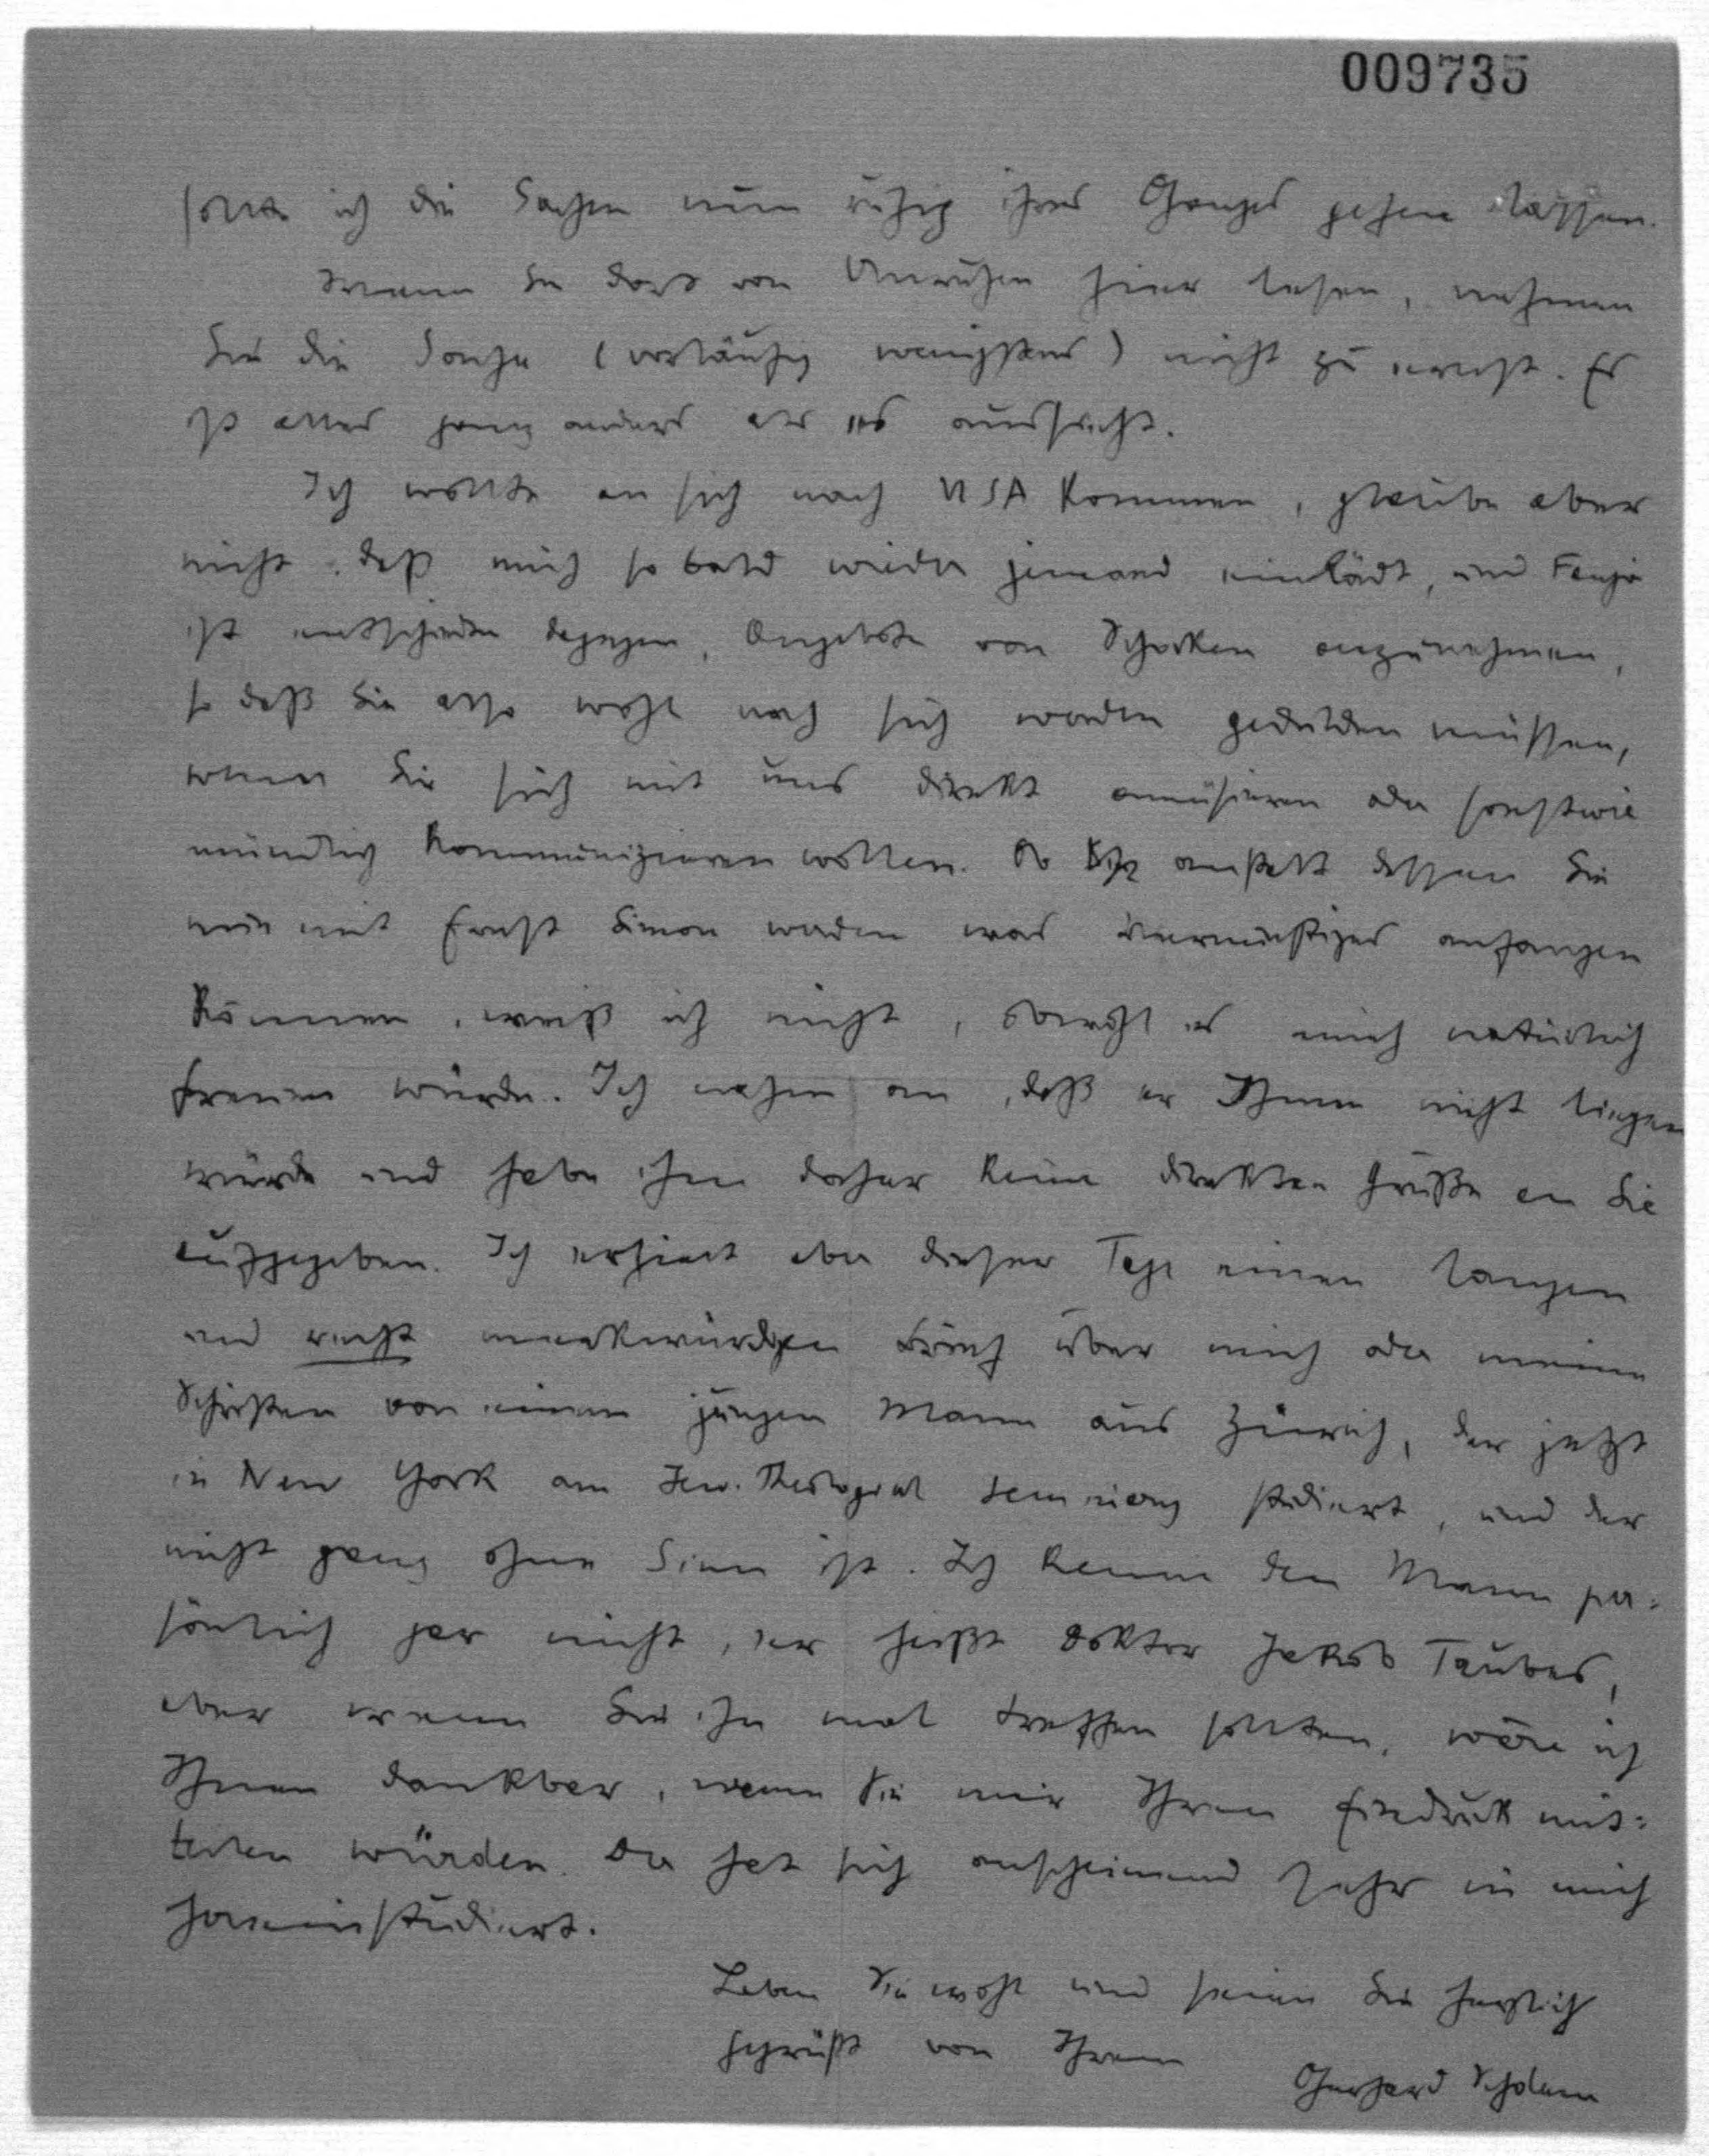 009735
sollte ich die Sachen nun ruhig ihres Ganges gehen lassen.
Wenn Sie dort von Unruhen hier lesen, nehmen
Sie die Sache (vorläufig wenigstens) nicht zu ernst. Es
ist alles ganz anders als es aussieht.
Ich wollte an sich nach USA kommen, glaube aber
nicht, daß mich so bald wieder jemand einlädt, und Fanja
ist entschieden dagegen, Angebote von Schocken anzunehmen,
so daß Sie also wohl noch sich werden gedulden müssen,
wenn Sie sich mit uns direkt amüsieren oder sonstwie
mündlich kommunizieren wollen. Ob anstatt dessen Sie
nun mit Ernst Simon werden was vernünftiges anfangen
können, weiß ich nicht, obwohl es mich natürlich
freuen würde. Ich nahm an, daß er Ihnen nicht liegen
würde und habe ihm daher keine direkten Grüße an Sie
aufgegeben. Ich erhielt aber dieser Tage einen langen
und recht merkwürdigen Brief über mich oder meine
Schriften von einem jungen Mann aus Zürich, der jetzt
in New York am Jew. Theological Seminary studiert, und der
nicht ganz ohne Sinn ist. Ich kenne den Mann per=
sönlich gar nicht, er heißt Doktor Jakob Taubes,
aber wenn Sie ihn mal treffen sollten, wäre ich
Ihnen dankbar, wenn Sie mir Ihren Eindruck mit=
teilen würden. Der hat sich anscheinend sehr in mich
hineinstudiert.
Leben Sie wohl und seien Sie herzlich
gegrüßt von Ihrem
Gerhard Scholem